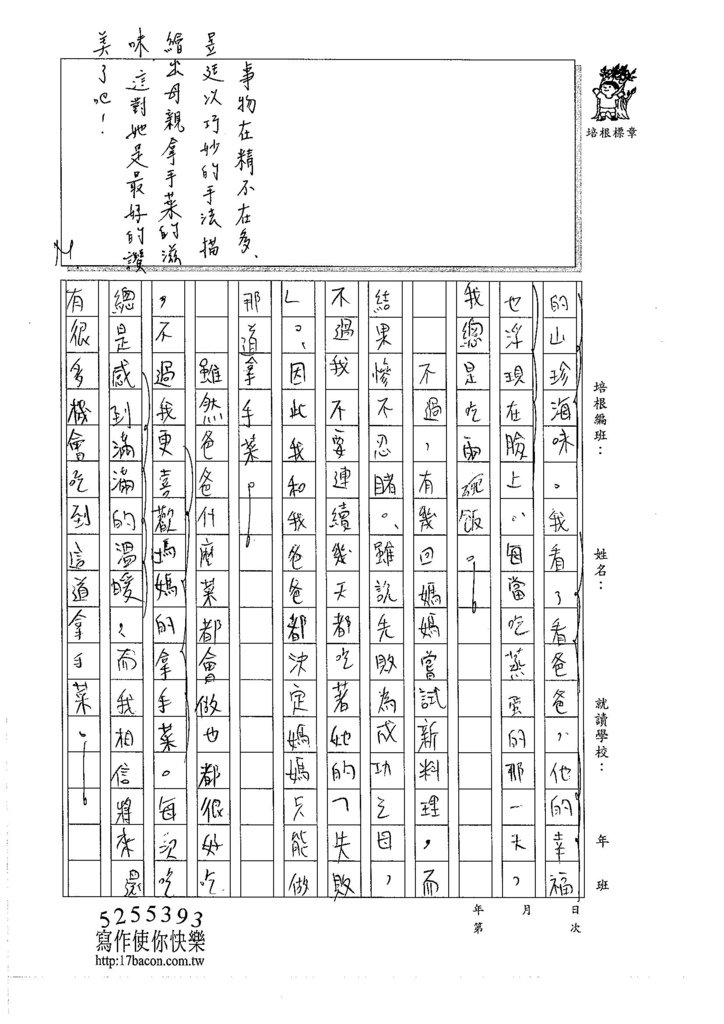 培根標章
事物在精不在多、
昱廷以巧妙的手法描
繪出母親拿手菜的滋
味,這對她是最好的讚
美了吧!
培根編班:
姓名:
就讀學校:
年 班
年 月 日
第 次
的山珍海味。我看了看爸爸,他的幸福
也浮現在臉上,每當吃蒸蛋的那一天,
我總是吃兩碗飯。
不過,有幾回媽媽嘗試新料理,而
結果慘不忍睹。雖說失敗為成功之母,
不過我不要連續幾天都吃著她的「失敗
」。因此我和我爸爸都決定媽媽只能做
那道拿手菜。
雖然爸爸什麼菜都會做也都很好吃
,不過我更喜歡媽媽的拿手菜。每次吃
總是感到滿滿的溫暖,而我相信將來還
有很多機會吃到這道拿手菜。
5255393
寫作使你快樂
http:17bacon.com.tw